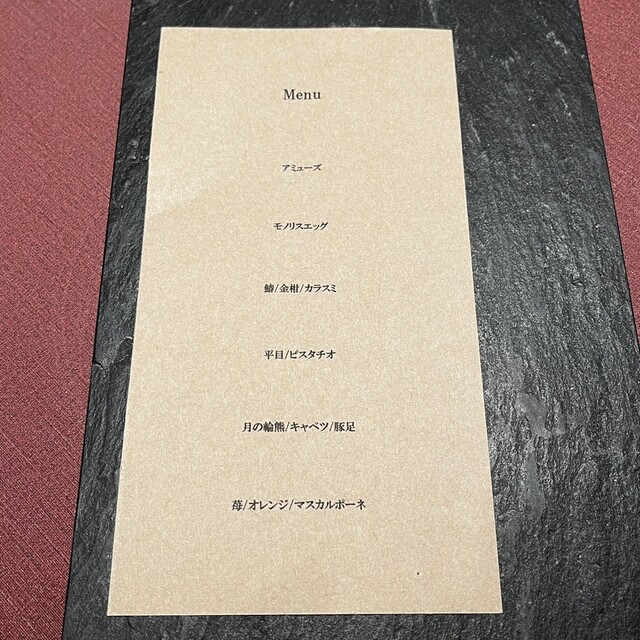 Menu
アミューズ
モノリスエッグ
鰆/金柑/カラスミ
平目/ピスタチオ
月の輪熊/キャベツ/豚足
苺/オレンジ/マスカルポーネ